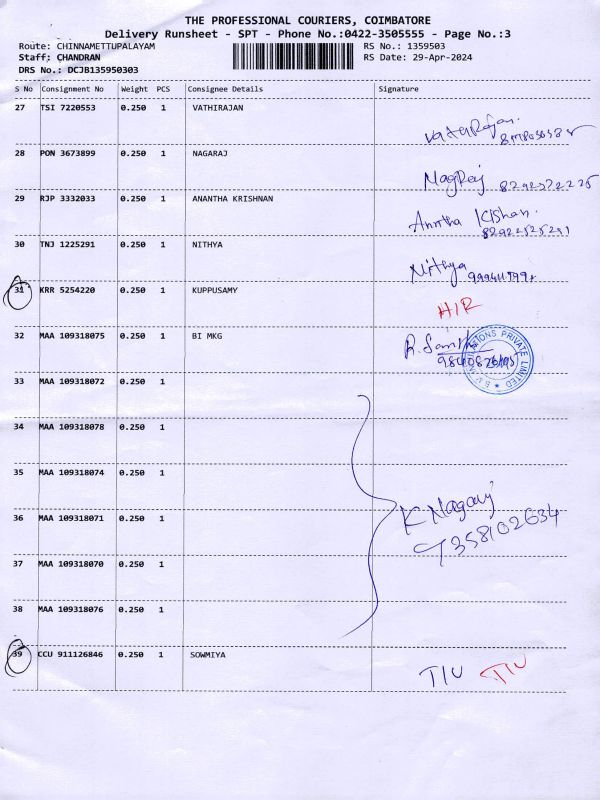 THE PROFESSIONAL COURIERS, COIMBATORE
Delivery Runsheet - SPT - Phone No.:0422-3505555 - Page No.:3
Route: CHINNAMETTUPALAYAM RS No.: 1359503
Staff: CHANDRAN RS Date: 29-Apr-2024
DRS No.: DCJB135950303
S No Consignment No Weight PCS Consignee Details Signature
27 TSI 7220553 0.250 1 VATHIRAJAN
28 PON 3673899 0.250 1 NAGARAJ
NagRaj
29 RJP 3332033 0.250 1 ANANTHA KRISHNAN
Anntha
30 TNJ 1225291 0.250 1 NITHYA
Nithya
31 KRR 5254220 0.250 1 KUPPUSAMY
HIR
32 MAA 109318075 0.250 1 BI MKG
PRIVATE LIMITED
33 MAA 109318072 0.250 1
34 MAA 109318078 0.250 1
35 MAA 109318074 0.250 1
36 MAA 109318071 0.250 1
K Nagaraj
9358102634
37 MAA 109318070 0.250 1
38 MAA 109318076 0.250 1
39 CCU 911126846 0.250 1 SOWMIYA
TIU TIU